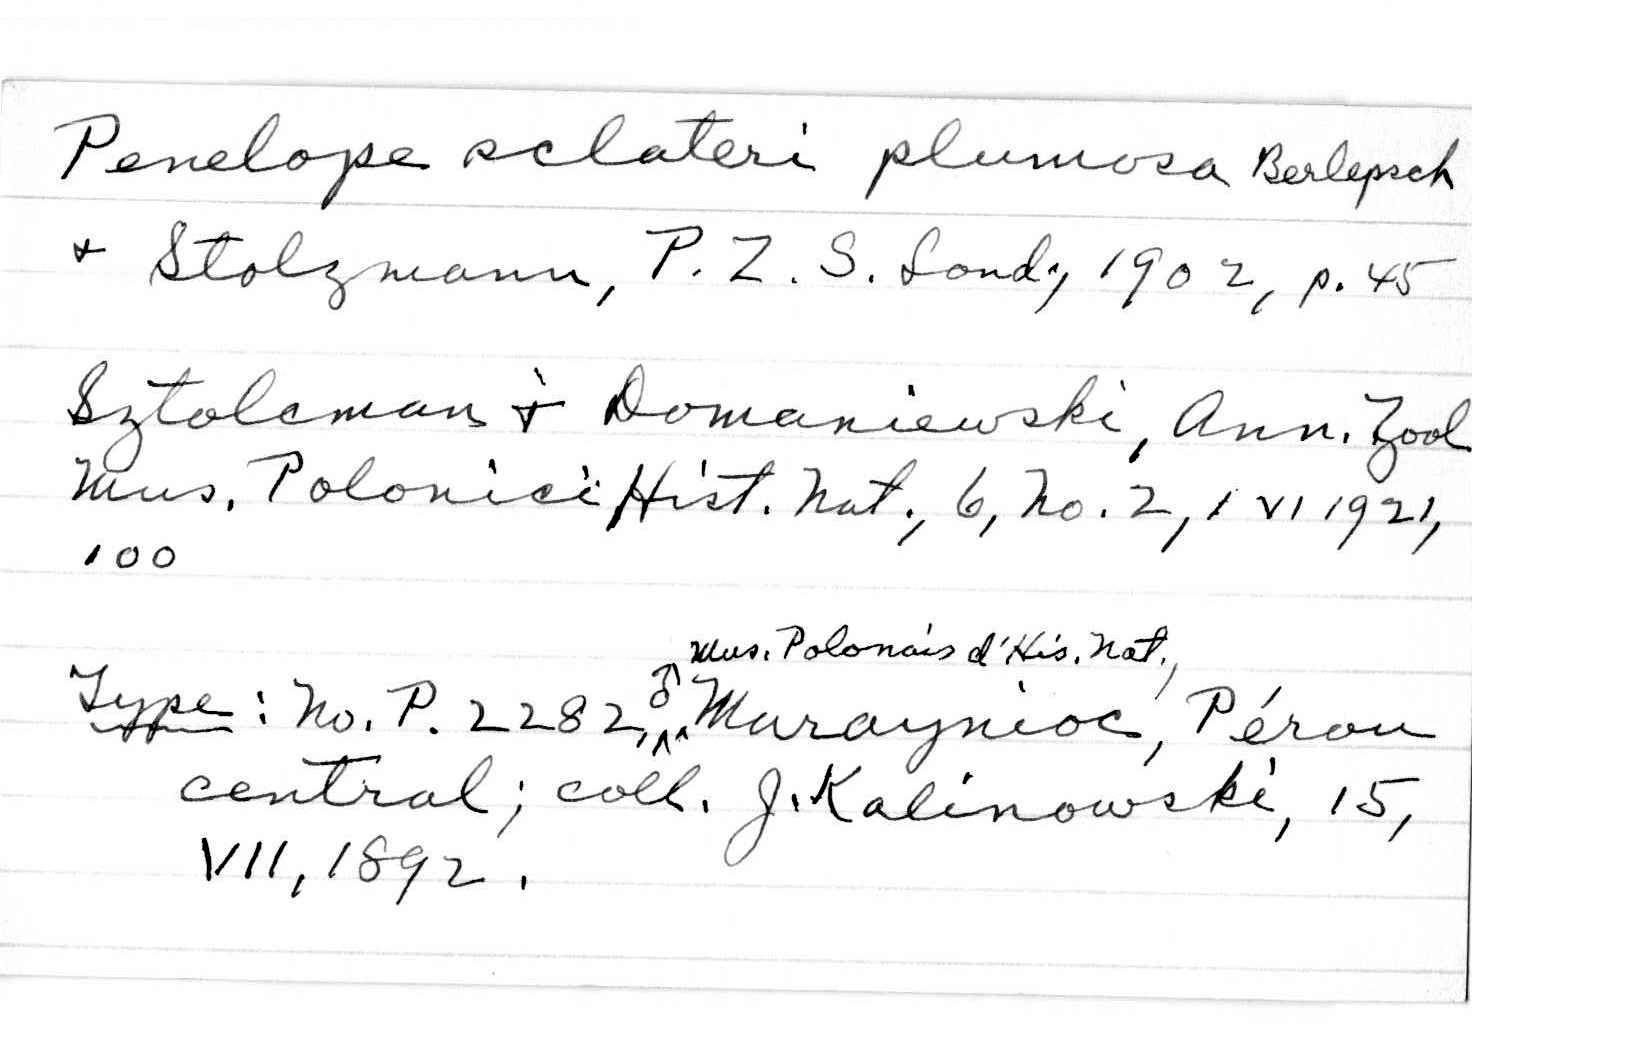 Penelope sclateri plumosa Berlepsch
+ Stolzmann, P. Z. S. Lond., 1902, p. 45
Sztolcman + Domaniewski, Ann. Zool
Mus. Polonici Hist. Nat., 6, No. 2, 1 VI 1921,
100
Mus. Polonais d'His. Nat.,
Type: No. P. 2282, ♂ Maraynioc, Pérou
central; coll. J. Kalinowski, 15,
VII, 1892.